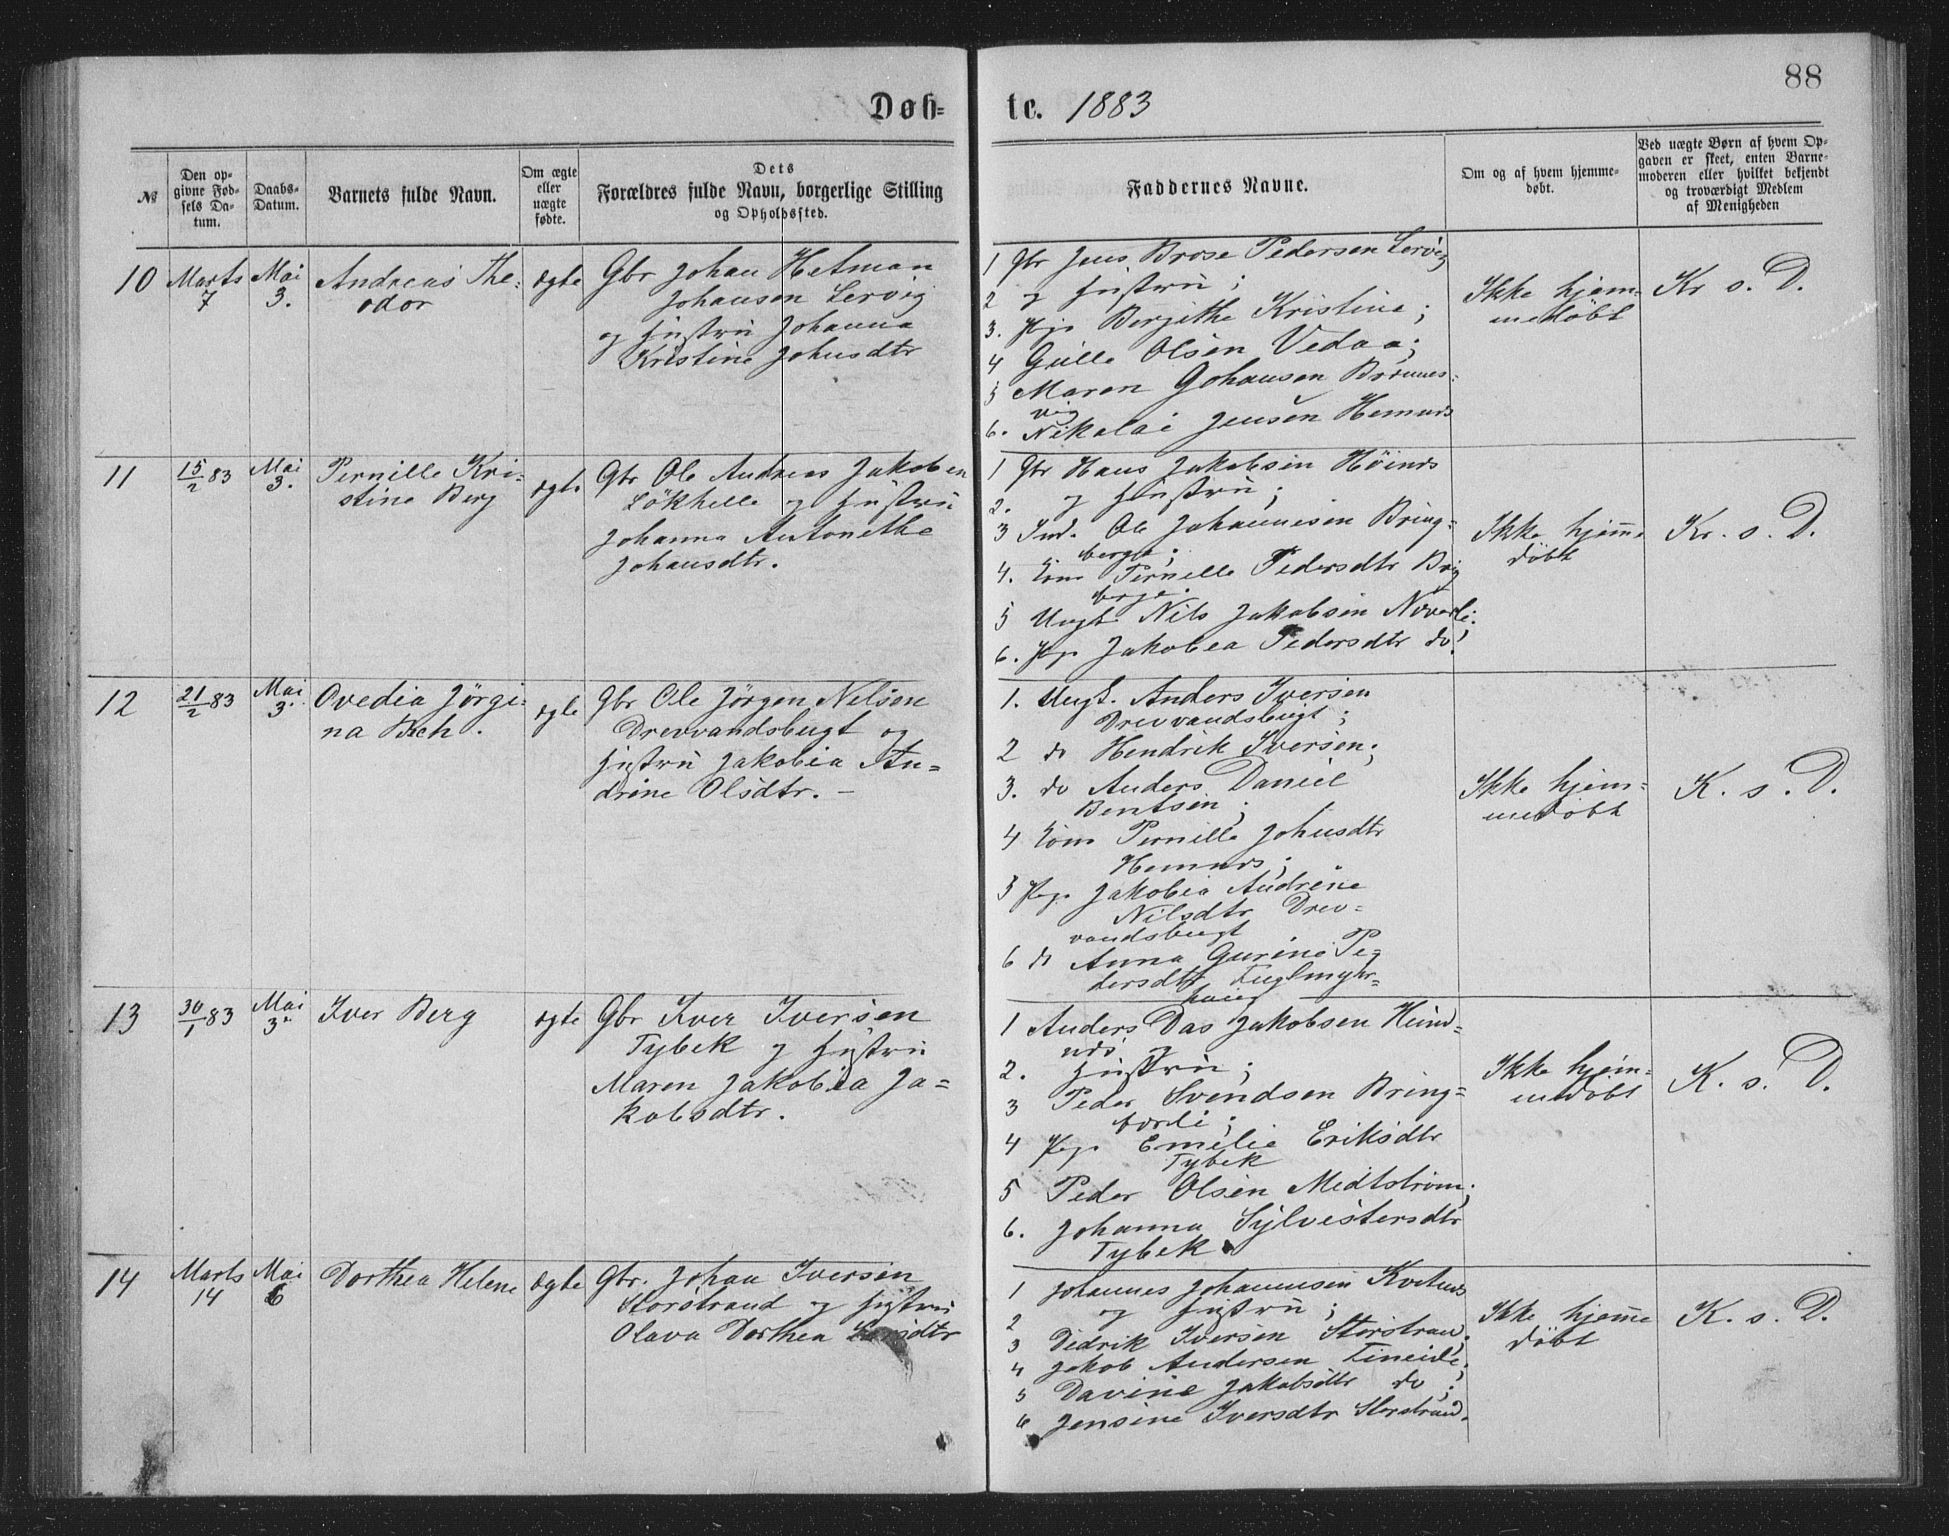 88
Døb= te. 1883
№
Den op-
givne Fød-
sels Da-
tum.
Daabs-
Datum.
Barnets fulde Navn.
Om ægte
eller
uægte
fødte.
Dets
Forældres fulde Navn, borgerlige Stilling
og Opholdssted.
Faddernes Navne.
Om og af hvem hjemme-
døbt.
Ved uægte Børn af hvem Op-
gaven er skeet, enten Barne-
moderen eller hvilket bekjendt
og troværdigt Medlem
af Menigheden
10
Marts
7
Mai
3.
Andreas The-
odor
ægte
Gbr Johan Hetman
Johansen Lervig
og Hustru Johanna
Kristine Johnsdtr
1 Gbr Jens Brose Pedersen Lervig
2 og Hustru;
3. Pige Bergithe Kristine;
4 Gulle Olsen Vedaa;
5 Maren Johansen Brennes-
vig
6. Nikolai Jensen Hemnes
Ikke hjem-
medøbt
Kr s. D.
11
15/2 83
Mai
3.
Pernille Kri-
stine Berg
ægte
Gbr Ole Andreas Jakobsen
Løkhelle og Hustru
Johanna Antonethe
Johansdtr.
1 Gbr Hans Jakobsen
2. og Hustru;
3 Ind. Ole Johannesen Bring-
berge;
4. Kone Pernille Pedersdtr
berge.
5 Ungk. Nils Jakobsen
6. Pige Jakobea Pedersdtr do!
Ikke hjemme
døbt
Kr. s. D.
12
21/2 83
Mai
3.
Ovedia Jørgi-
na Bech.
ægte
Gbr Ole Jørgen Nelsen
Drevvandsbugt og
Hustru Jakobia An=
drine Olsdtr. —
1. Ungk. Anders Iversen
Drevvandsbugt;
2 do Hendrik Iversen;
3. do Anders Daniel
Bentsen;
4 Kone Pernille Johnsdtr
Hemnes;
5 Pige Jakobia Andrine
Nilsdtr Drev=
vandsbugt
6 do Anna Gurine Pe=
dersdtr
Ikke hjem=
medøbt
K. s. D.
13
30/1 83
Mai
3.
Iver Berg
ægte
Gbr Iver Iversen
Tybek og Hustru
Maren Jakobia Ja=
kobsdtr.
1 Anders Das Jakobsen
2. Hustru;
3 Peder Svendsen Bring=
4 Pige Emelie Eriksdtr
Tybek
5 Peder Olsen Medtstrøm;
6. Johanna Sylvestersdtr
Tybek
Ikke hjem=
medøbt
K. s. D.
14
Marts
14
Mai
6
Dorthea Helene
ægte
Gbr. Johan Iversen
Storstrand og Hustru
Olava Dorthea Larsdtr
1 Johannes Johannesen
2 og Hustru;
3 Didrik Iversen Storstrand.
4 Jakob Andersen Fineide;
5 Davine Jakobsdtr do;
6 Jensine Iversdtr Storstrand.
Ikke hjemme
døbt
K. s. D.